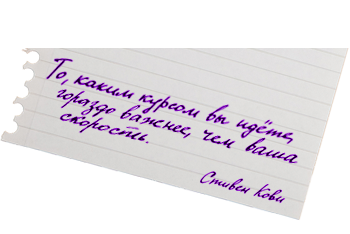 То, каким курсом вы идёте,
гораздо важнее, чем ваша
скорость.
Стивен Кови